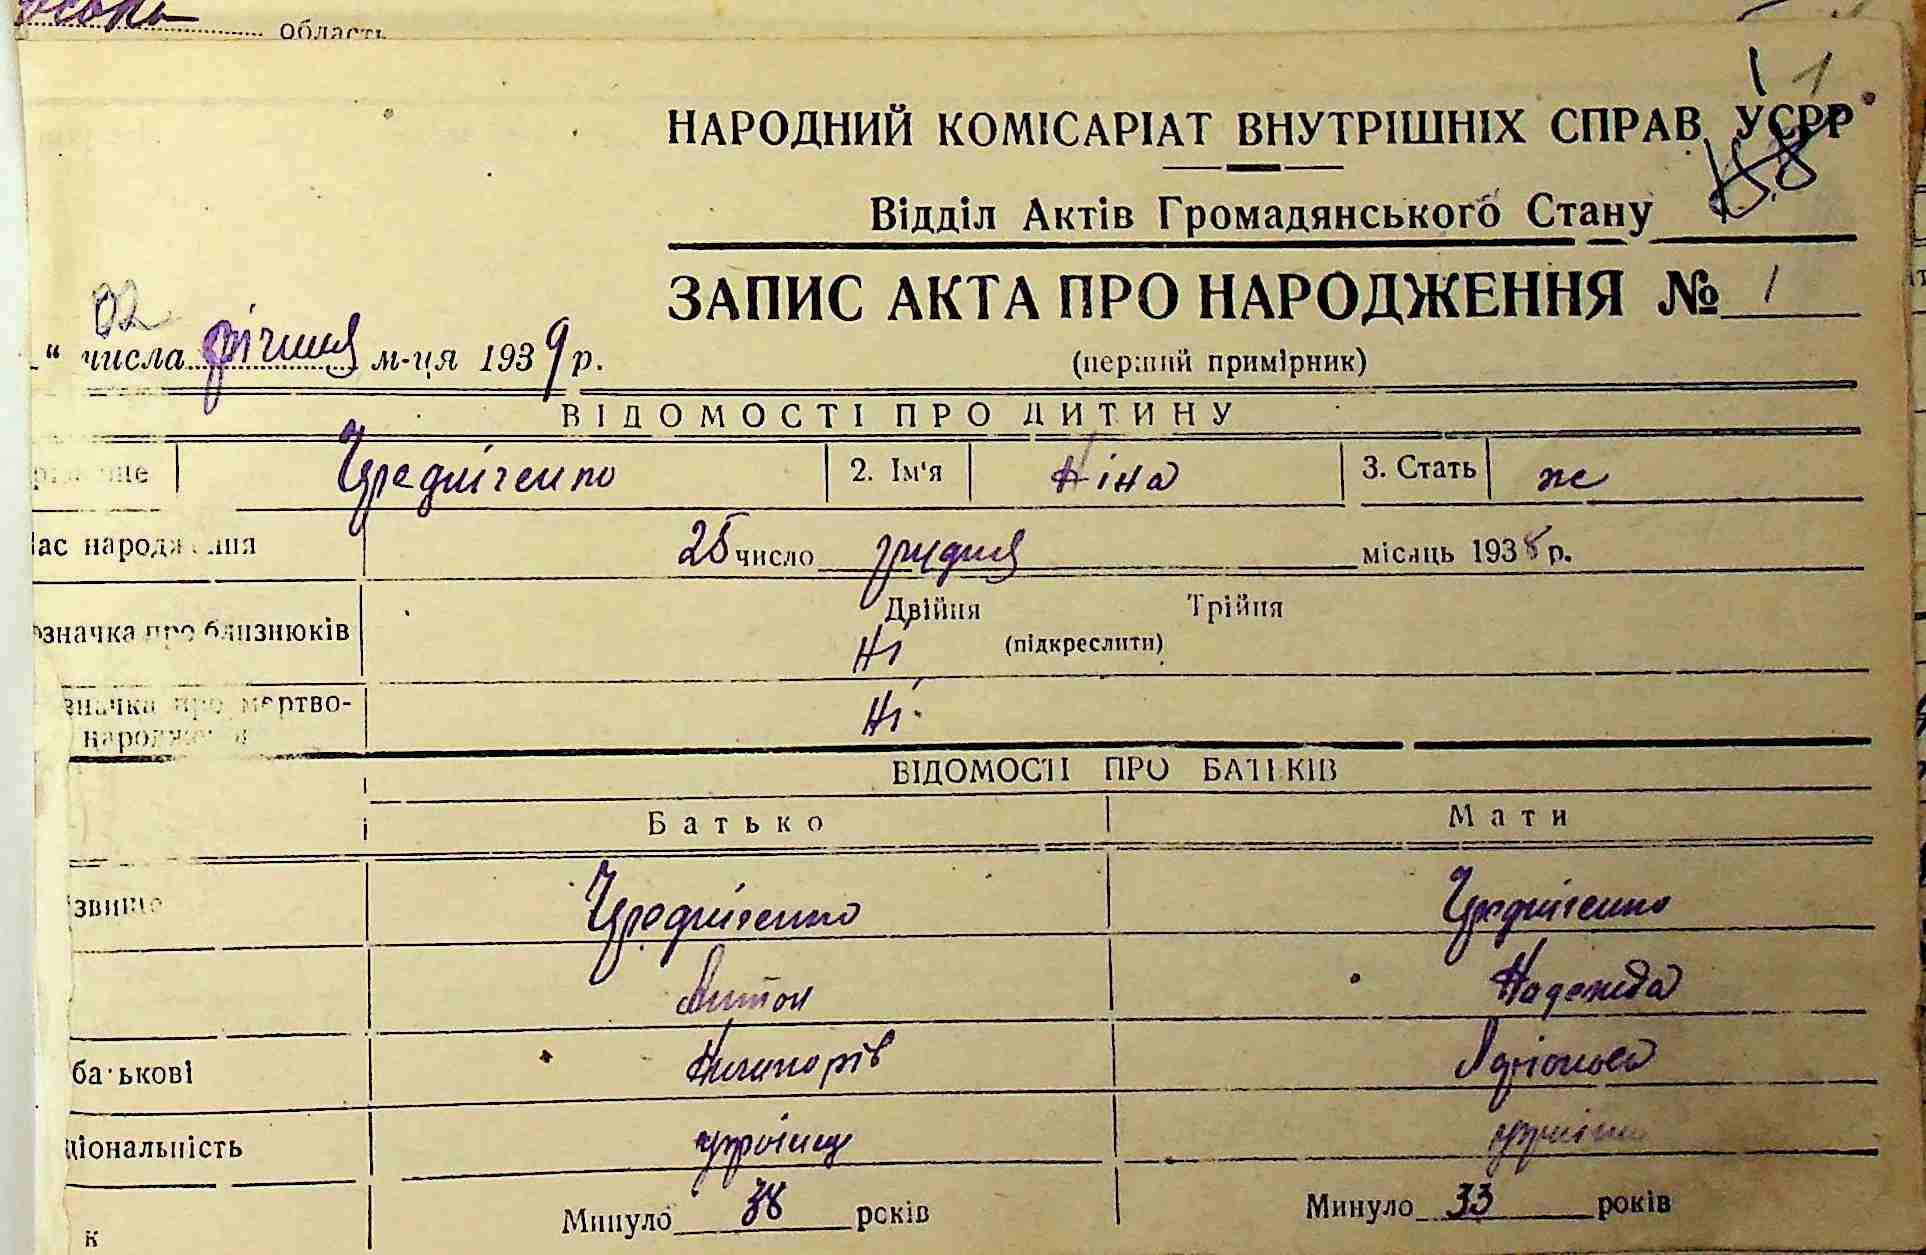 область
НАРОДНИЙ КОМІСАРІАТ ВНУТРІШНІХ СПРАВ УСРР
Відділ Актів Громадянського Стану
ЗАПИС АКТА ПРО НАРОДЖЕННЯ № 1
02
“ числа січня м-ця 1939 р.
(перший примірник)
ВІДОМОСТІ ПРО ДИТИНУ
Чередніченко 2. Ім'я Ніна 3. Стать ж
ас народження 25 число грудня місяць 1938 р.
Двійня Трійня
означка про близнюків Ні (підкреслити)
значка про мертво-
народження Ні
ВІДОМОСТІ ПРО БАТЬКІВ
Батько Мати
звище Чередніченко Чередніченко
Антон Надежда
батькові Ничипорів
ціональність україн
к Минуло 38 років Минуло 33 років